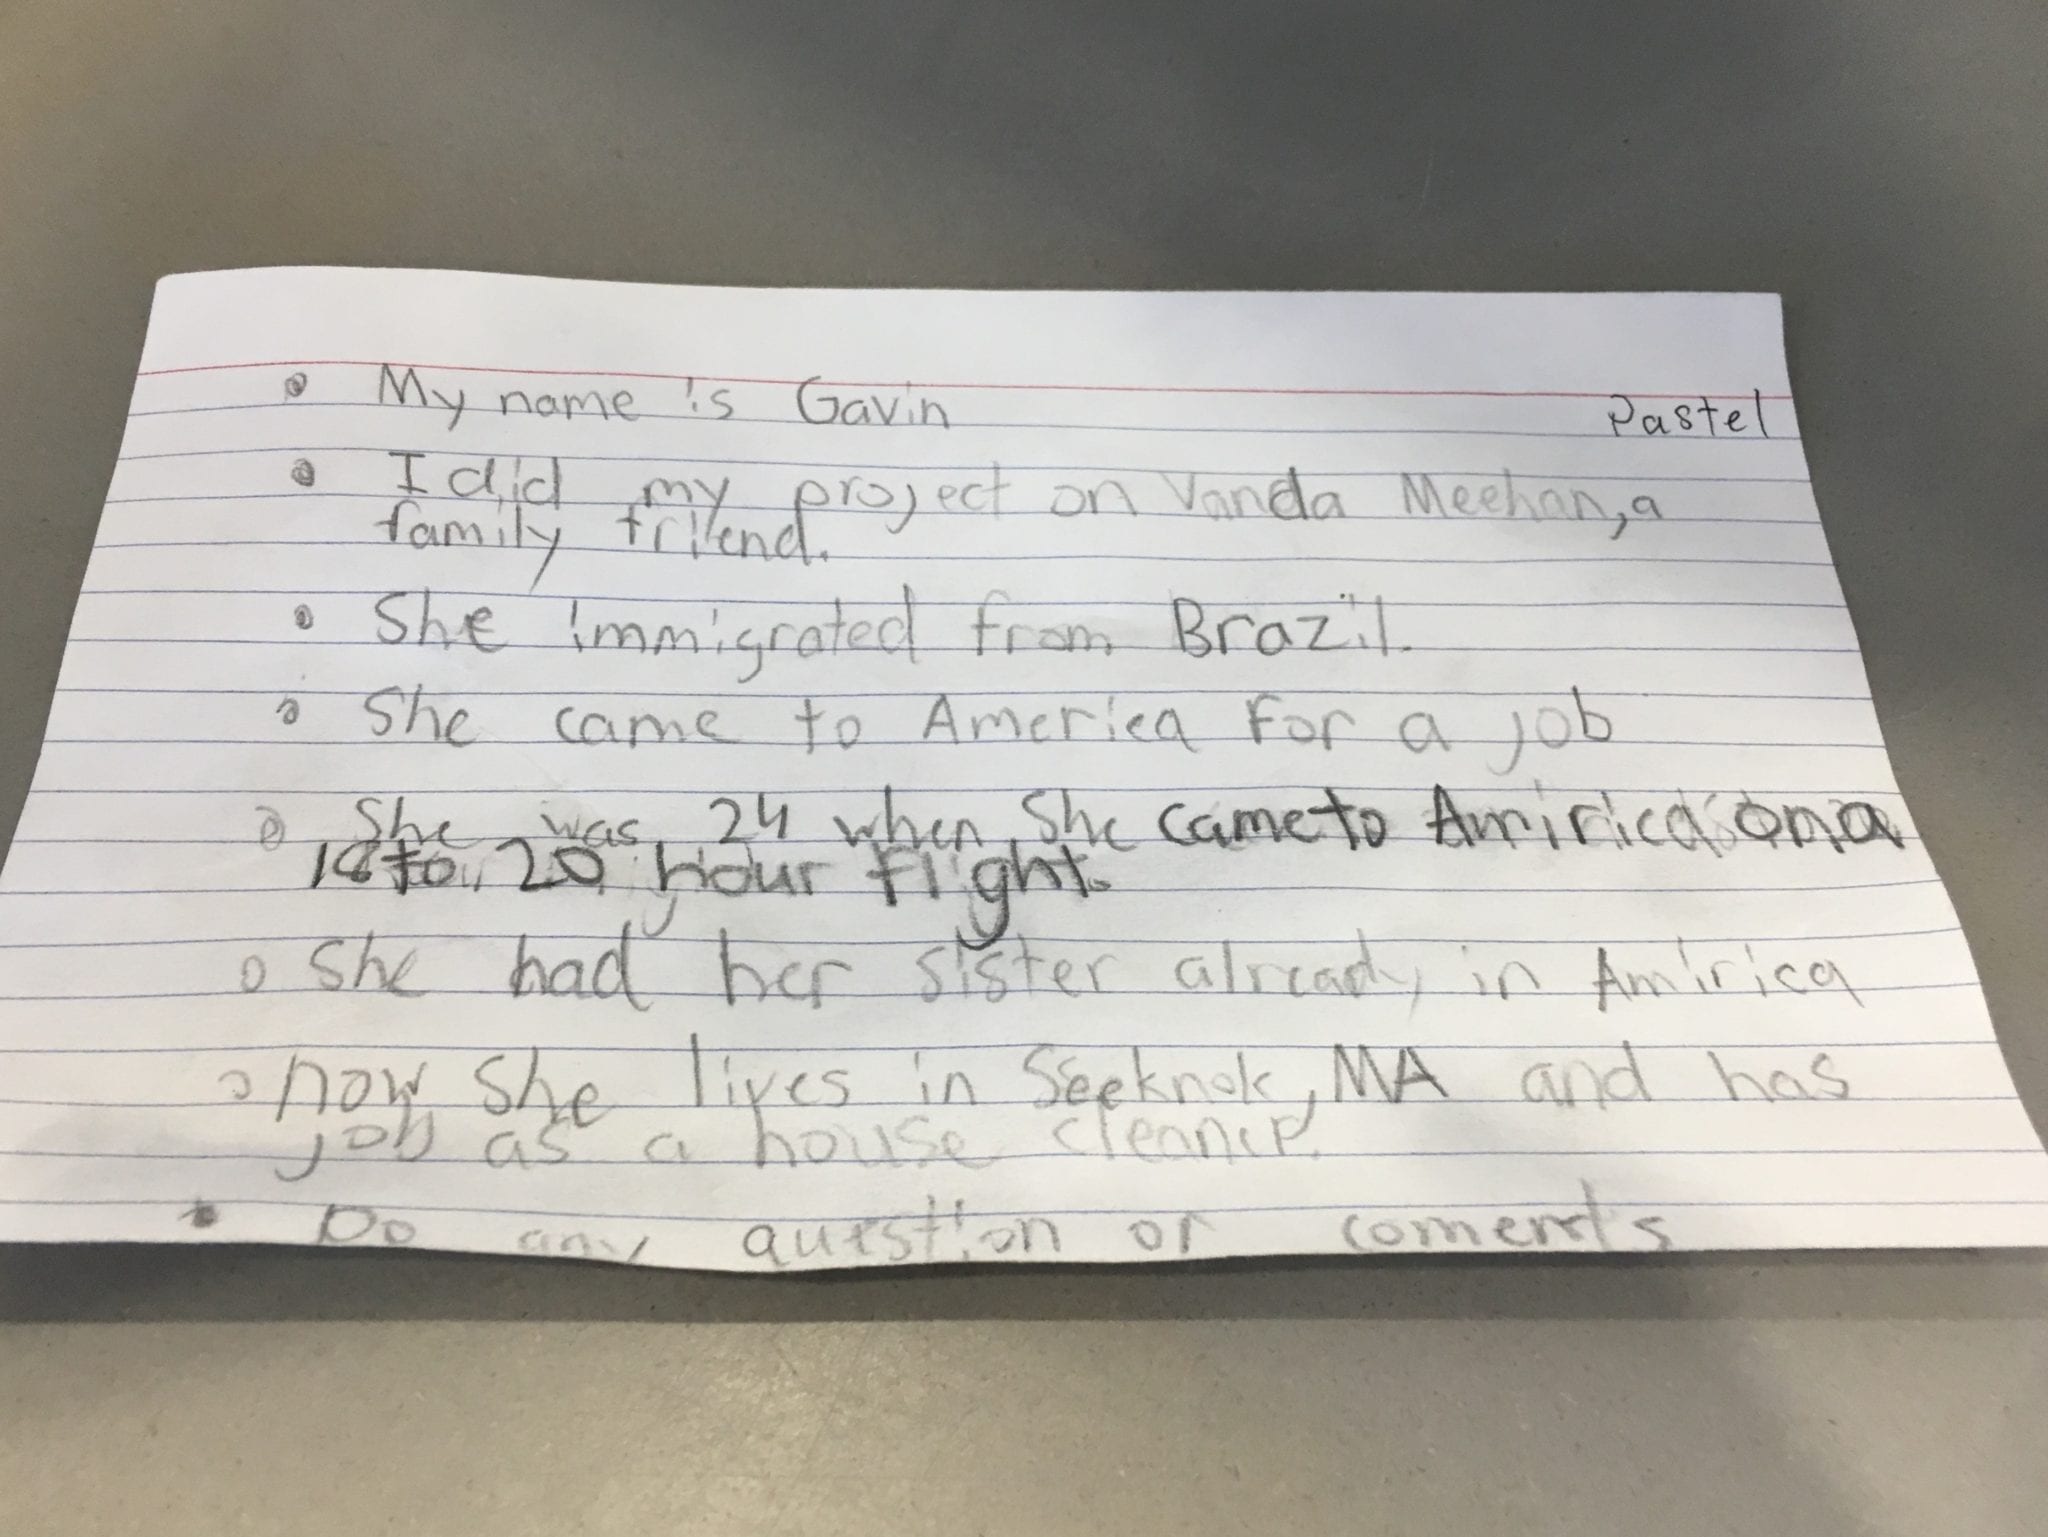 • My name is Gavin
Pastel
• I did my project on Vanda Meehan, a
family friend.
• She immigrated from Brazil.
• She came to America For a job
• She was 24 when She came to Amirica on a
18 to 20 hour flight.
• She had her sister already in Amirica
• now She lives in Seeknok, MA and has
job as a house cleaner.
• Do any question or coments